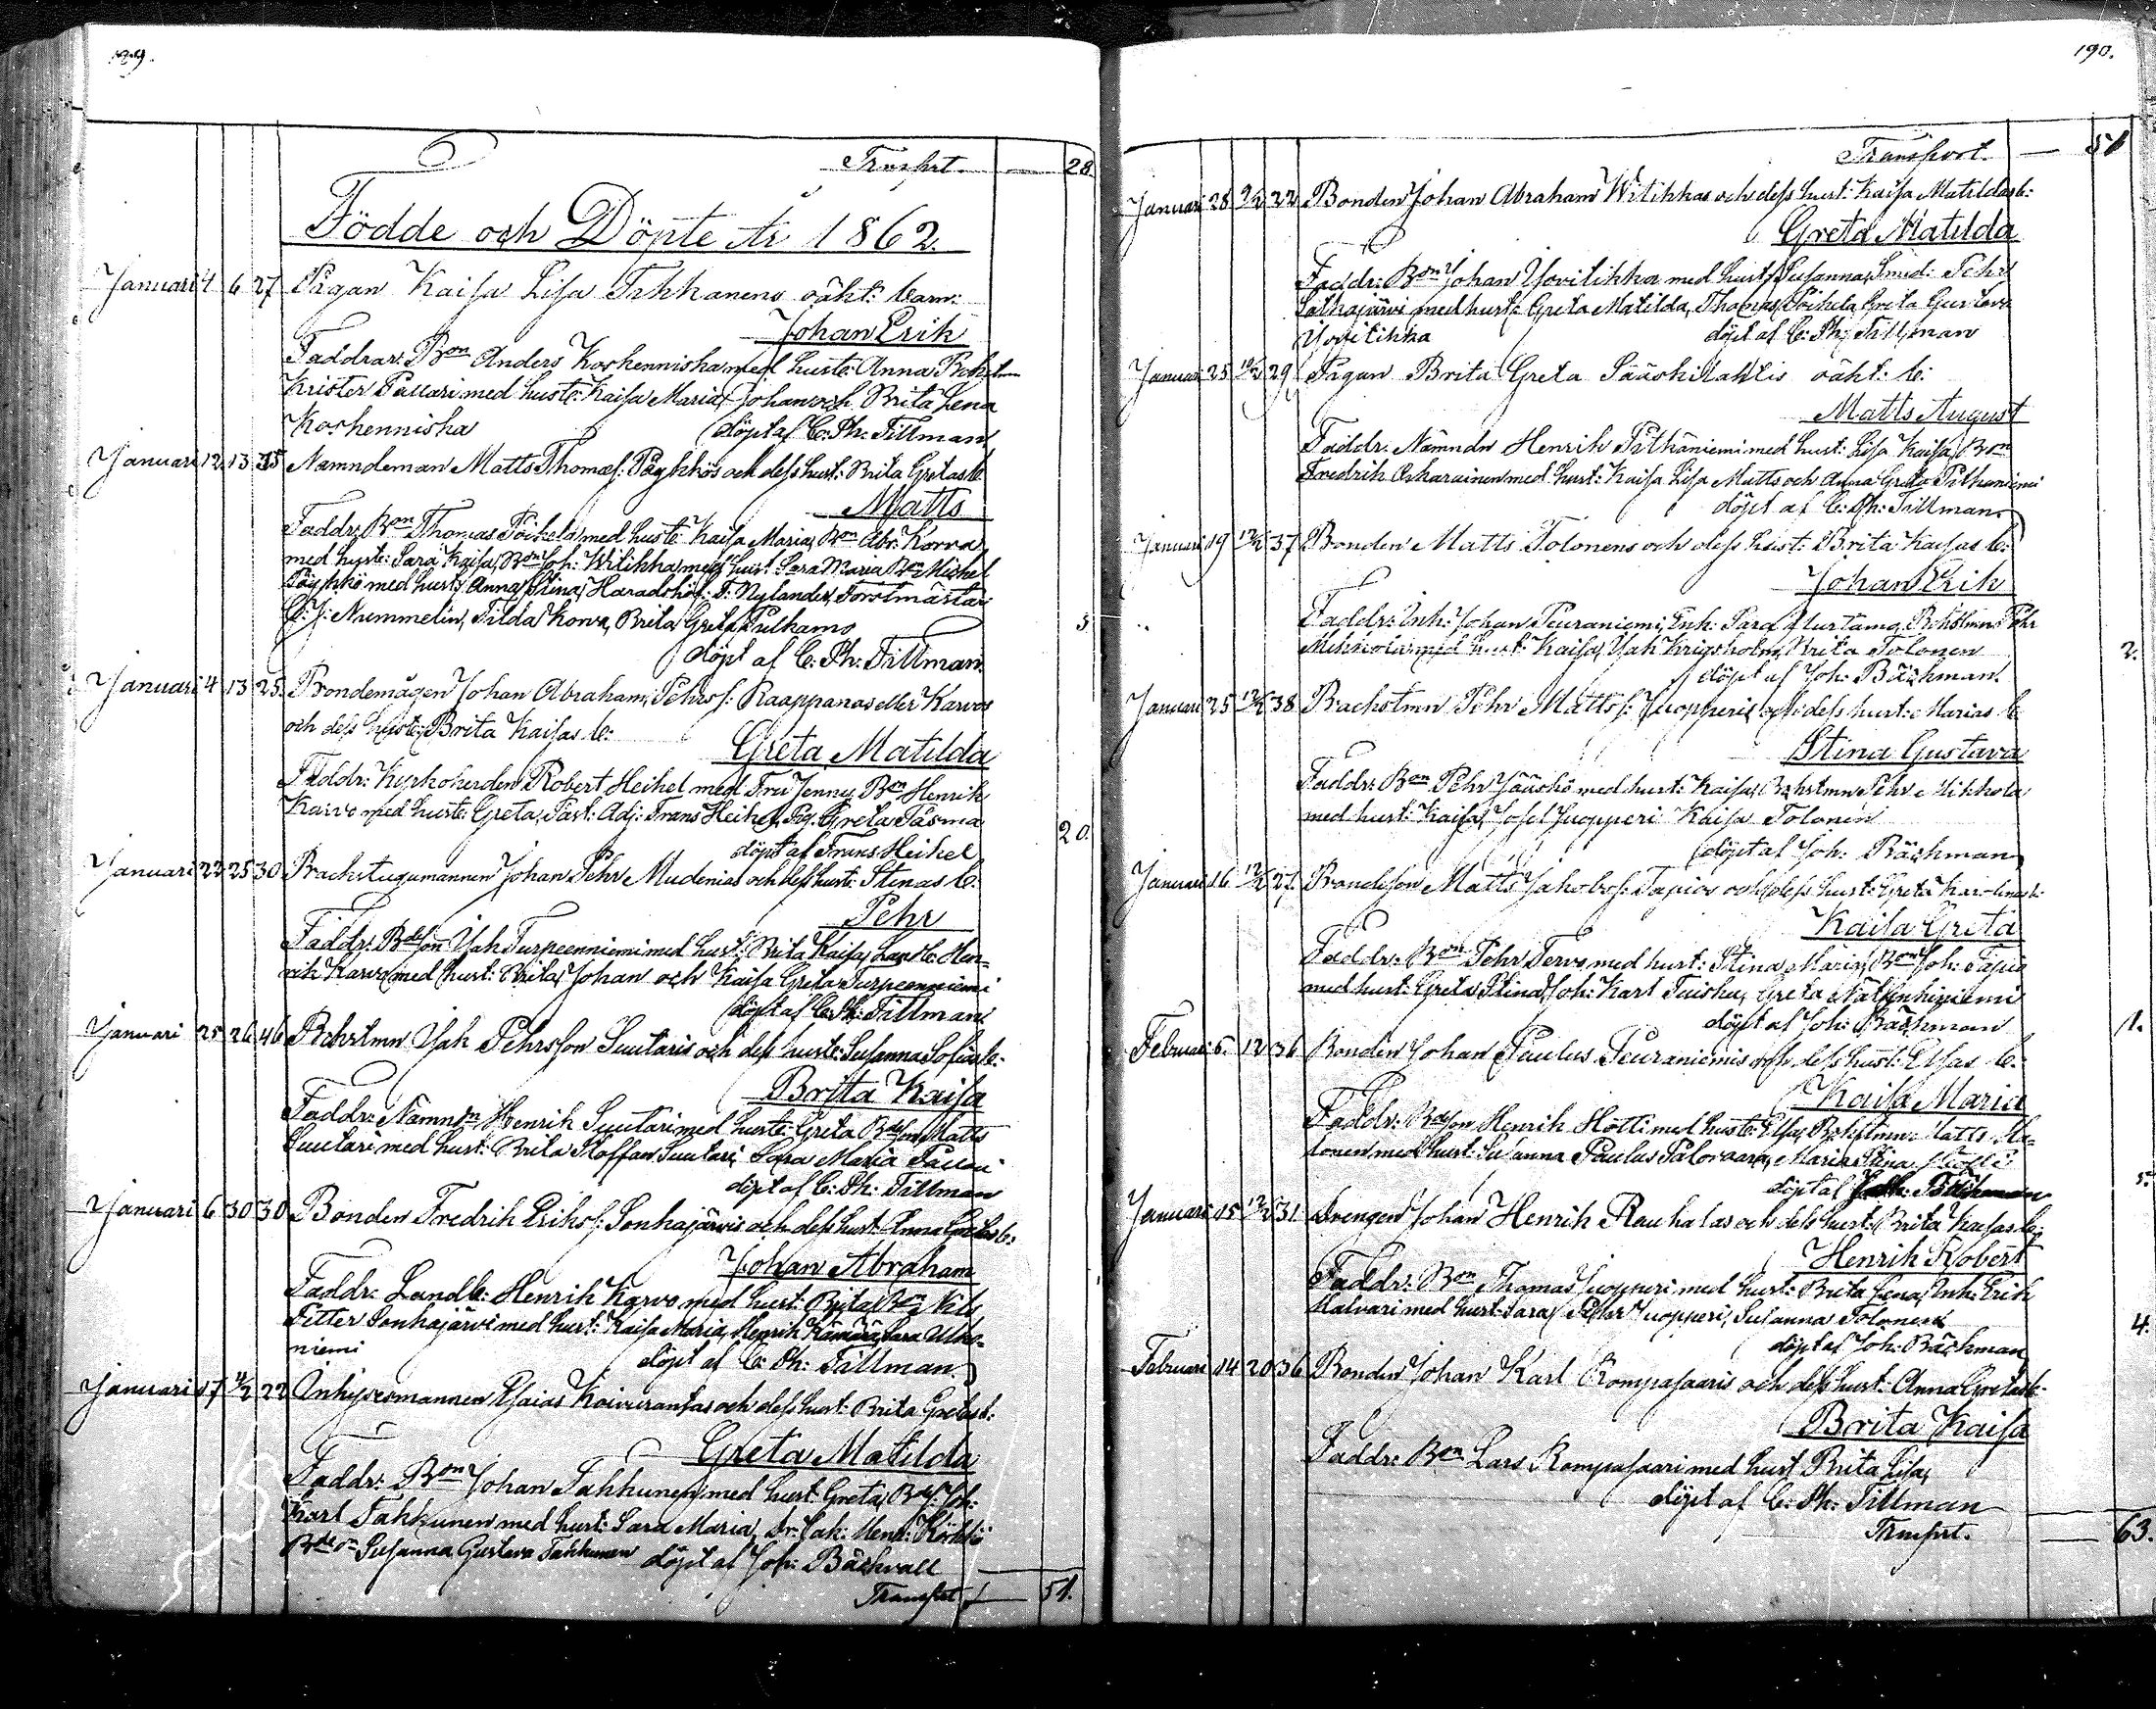 189.
Trnsprt. — 28.
Födde och Döpte År 1862.
Januari 4 6 27 Pigan Kaisa Lisa Tihkanens oäkt: barn:
Johan Erik
Faddrar: Bon Anders Koskenniska med hust: Anna, Bckstmn
Krister Pallari med hust: Kaisa Maria, Johan och Brita Lena
Koskenniska döpt af C: Ph: Tillman
Januari 12 13 35 Nämndeman Matts Thomæs: Pöykkös och dess hust: Brita Gretas b:
Matts
Faddr: Bon Thomas Poikela med hust: Kaisa Maria, Bon Abr: Korva
med hust: Sara Kaisa, Bon Joh: Wilikka med hust: Sara Maria Bon Michel
Pöykkö med hust: Anna Stina, Häradshöf: F: Nylander, Forstmästar
C: J: Nummelin, Tilda Korva, Brita Greta Pulkamo 5
döpt af C: Ph: Tillman.
Januari 4 13 25 Bondemågen Johan Abraham, Pehrs s: Raappanas eller Karvos
och dess hust: Brita Kaisas b:
Greta Matilda
Faddr: Kyrkoherden Robert Heikel med Fru Jenny, Bon Henrik
Karvo med hust: Greta, Past: Adj: Frans Heikel, Pig. Greta Päsmä 20.
döpt af Frans Heikel
Januari 22 25 30 Backstugumannen Johan Pehr Mudenias och dess hust: Stinas b:
Pehr
Faddr: Bdeson Jak Turpeenniemi med hust: Brita Kaisa, Landb: Hen-
rik Karvo med hust: Brita, Johan och Kaisa Greta Turpeenniemi
döpt af C: Ph: Tillman
Januari 25 26 46 Bckstmn Jak Pehrsson Suutaris och dess hust: Susanna Sofias b:
Brita Kaisa
Faddr: Nämndn Henrik Suutari med hust: Greta Bdeson Matts
Suutari med hust: Brita Stoffan Suutari Sara Maria Pallari
döpt af C: Ph: Tillman
Januari 6 30 30 Bonden Fredrik Eriks s: Sonkajärvis och dess hust: Anna Gretas b:
Johan Abraham
Faddr: Landb: Henrik Karvo med hust: Brita, Bon Nils
Petter Sonkajärvi med hust: Kaisa Maria, Henrik Kämärä, Sara Ulko-
niemi döpt af C: Ph: Tillman
Januari 17 4/2 22 Inhysesmannen Esaias Koivurantas och dess hust: Brita Gretas b:
Greta Matilda
Faddr: Bon Johan Tahkunen med hust: Greta, Bdes: Joh:
Karl Tahkunen med hust: Sara Maria, Dr: Jak: Henr: Körkkö
Bded: Susanna Gustava Tahkunen döpt af Joh: Bäckvall
Trnsprt — 51.
190.
Transport. — 51
Januari 28 9/2 22 Bonden Johan Abraham Wilikkas och dess hust: Kaisa Matildas b:
Greta Matilda
Faddr: Bon Johan Ylivilikka med hust: Susanna, Smed: Pehr
med hust: Greta Matilda, Thomas Poikela, Greta Gustava
döpt af C: Ph: Tillman
Januari 25 10/2 29 Pigan Brita Greta Pääskilahtis oäkt: b:
Matts August
Faddr: Nämndn Henrik Pitkäniemi med hust: Lisa Kaisa, Bon
Fredrik Askarainen med hust: Kaisa Lisa Matts och Anna Greta Pitkäniemi
döpt af C: Ph: Tillman
Januari 19 12/2 37 Bonden Matts Tolonens och dess hust: Brita Kaisas b:
Johan Erik
Faddr: Inh: Johan Peuraniemi, Enk: Sara Aurtamo, Bckstmn Pehr
Mikkola med hust: Kaisa, Jak Krigsholm, Brita Tolonen 2.
döpt af Joh: Bäckman
Januari 25 12/2 38 Backstmn Pehr Matts s: Juopperis och dess hust: Marias b:
Stina Gustava
Faddr: Bon Pehr Jääskö med hust: Kaisa, Bckstmn Pehr Mikkola
med hust: Kaisa, Josef Juopperi Kaisa Tolonen
döpt af Joh: Bäckman
Januari 16 12/2 27 Bondeson Matts Jakobs s: Tapios och dess hust: Greta Karolinas b:
Kaisa Greta
Faddr: Bon Pehr Tervo med hust: Stina Maria, Bon Joh: Tapio
med hust: Greta Stina, Joh: Karl Tuisku, Greta
döpt af Joh: Bäckman 1.
Februari 6. 12 36 Bonden Johan Paulus Peuraniemis och dess hust: Elsas b:
Kaisa Maria
Faddr: Bdeson Henrik Hötti med hust: Elsa, Bckstmn Matts
med hust: Susanna Paulus Palovaara, Maria Stina
döpt af 5.
Januari 15 12/2 31 Drengen Johan Henrik Rauhalas och dess hust: Brita Kaisas b:
Henrik Robert
Faddr: Bon Thomas Juopperi med hust: Brita Lena, Inh: Erik
Kalvari med hust: Sara, Petter Juopperi, Susanna Tolonen 4.
döpt af Joh: Bäckman
Februari 14 20 36 Bonden Johan Karl Rompasaaris och dess hust: Anna Gretas b:
Brita Kaisa
Faddr: Bon Lars Rompasaari med hust Brita Lisa,
döpt af C: Ph: Tillman
Trnsprt. — 63.